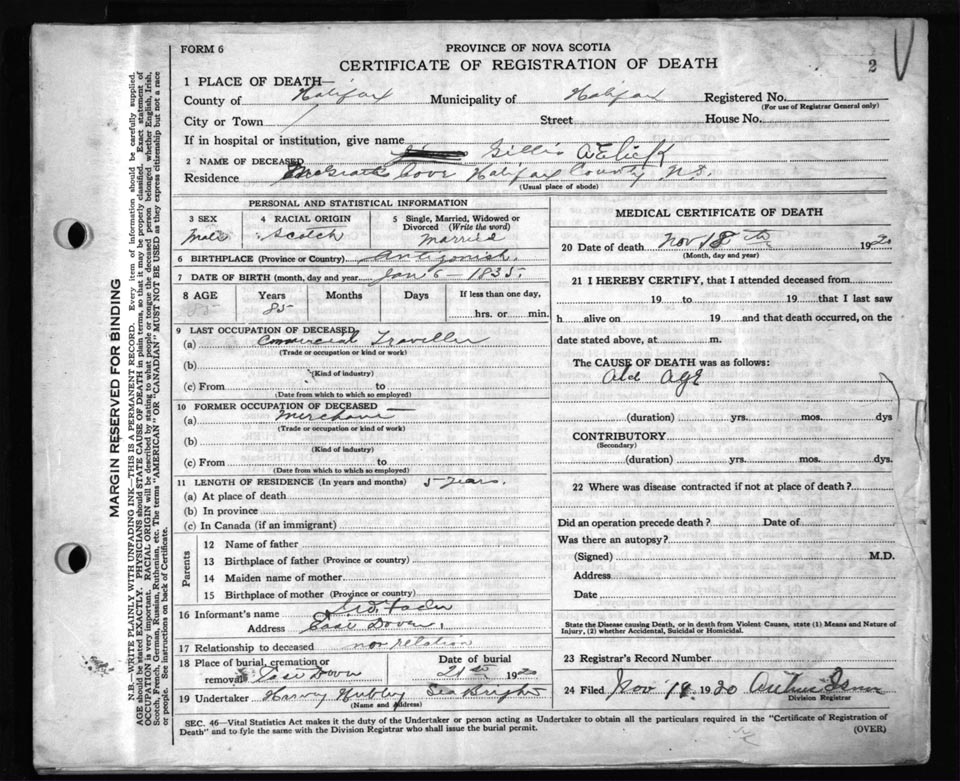 FORM 6
PROVINCE OF NOVA SCOTIA
CERTIFICATE OF REGISTRATION OF DEATH
2
1 PLACE OF DEATH—
County of Halifax Municipality of Halifax Registered No.
(For use of Registrar General only)
City or Town Street House No.
If in hospital or institution, give name
2 NAME OF DECEASED Gillis
Residence Cove Halifax County N.S.
(Usual place of abode)
PERSONAL AND STATISTICAL INFORMATION
3 SEX Male
4 RACIAL ORIGIN Scotch
5 Single, Married, Widowed or Divorced (Write the word) Married
6 BIRTHPLACE (Province or Country) Antigonish
7 DATE OF BIRTH (month, day and year) Jan 6 - 1835
8 AGE Years Months Days If less than one day,
85 85 hrs. or min.
9 LAST OCCUPATION OF DECEASED
(a) Commercial Traveller
(Trade or occupation or kind or work)
(b)
(Kind of industry)
(c) From to
(Date from which to which so employed)
10 FORMER OCCUPATION OF DECEASED
(a) Merchant
(Trade or occupation or kind of work)
(b)
(Kind of industry)
(c) From to
(Date from which to which so employed)
11 LENGTH OF RESIDENCE (In years and months) 5 years.
(a) At place of death
(b) In province
(c) In Canada (if an immigrant)
Parents
12 Name of father
13 Birthplace of father (Province or country)
14 Maiden name of mother
15 Birthplace of mother (Province or country)
16 Informant's name
Address East Dover.
17 Relationship to deceased non relation
18 Place of burial, cremation or removal East Dover Date of burial 21st 1920
19 Undertaker Harvey Hubley Seabright
(Name and address)
MEDICAL CERTIFICATE OF DEATH
20 Date of death Nov 18th 1920
(Month, day and year)
21 I HEREBY CERTIFY, that I attended deceased from
19 to 19 that I last saw
h alive on 19 and that death occurred, on the
date stated above, at m.
The CAUSE OF DEATH was as follows:
Old Age
(duration) yrs. mos. dys
CONTRIBUTORY
(Secondary)
(duration) yrs. mos. dys.
22 Where was disease contracted if not at place of death?
Did an operation precede death? Date of
Was there an autopsy?
(Signed) M.D.
Address
Date
State the Disease causing Death, or in death from Violent Causes, state (1) Means and Nature of
Injury, (2) whether Accidental, Suicidal or Homicidal.
23 Registrar's Record Number
24 Filed Nov 19 1920
Division Registrar
SEC. 46—Vital Statistics Act makes it the duty of the Undertaker or person acting as Undertaker to obtain all the particulars required in the "Certificate of Registration of
Death" and to fyle the same with the Division Registrar who shall issue the burial permit.
(OVER)
MARGIN RESERVED FOR BINDING
N.B.—WRITE PLAINLY WITH UNFADING INK—THIS IS A PERMANENT RECORD. Every item of information should be carefully supplied.
AGE should be stated EXACTLY. PHYSICIANS should STATE CAUSE OF DEATH in plain terms, so that it may be properly classified. Exact statement of
OCCUPATION is very important. RACIAL ORIGIN will be described by stating to what people or tongue the deceased person belonged whether English, Irish,
Scotch, French, German, Russian, Ruthenian, etc. The terms "AMERICAN" OR "CANADIAN" MUST NOT BE USED as they express citizenship but not a race
or people. See instructions on back of Certificate.